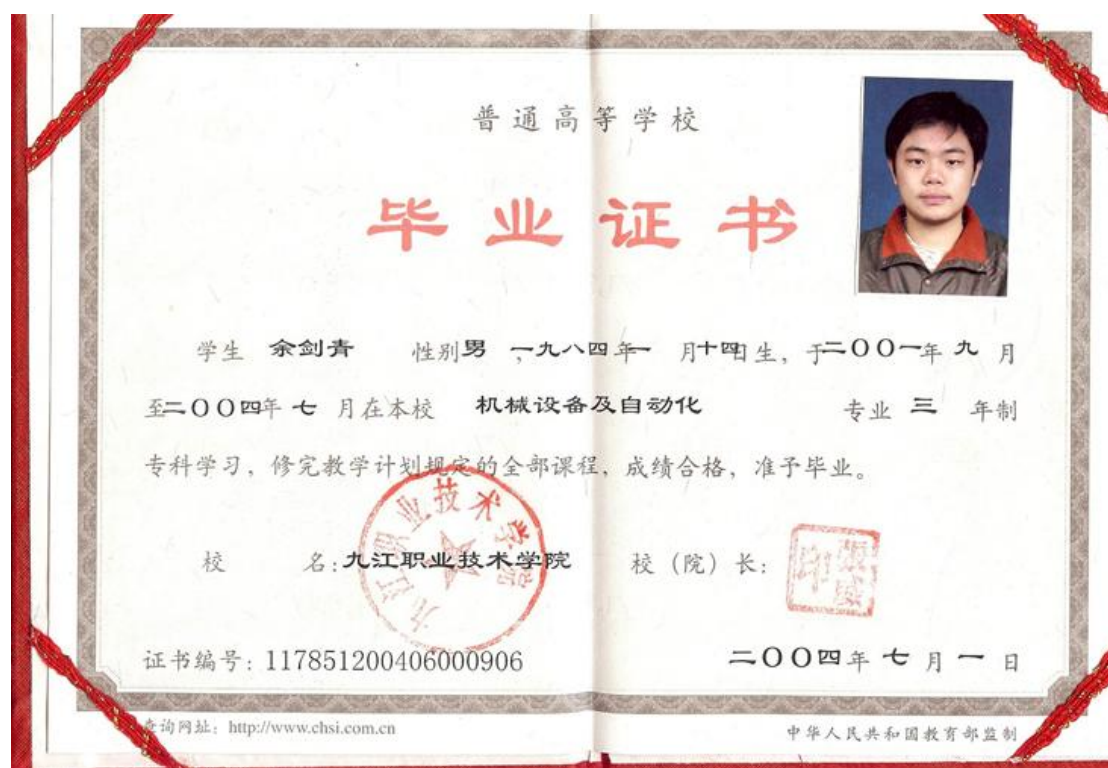 普通高等学校
毕业证书
学生 余剑青 性别 男 ,一九八四年一 月十四日生，于二〇〇一年 九 月
至二〇〇四年 七 月在本校 机械设备及自动化 专业 三 年制
专科学习，修完教学计划规定的全部课程，成绩合格，准予毕业。
九江职业技术学院
校 名:九江职业技术学院 校（院）长:
证书编号: 117851200406000906 二〇〇四年 七 月 一 日
查询网址: http://www.chsi.com.cn 中华人民共和国教育部监制